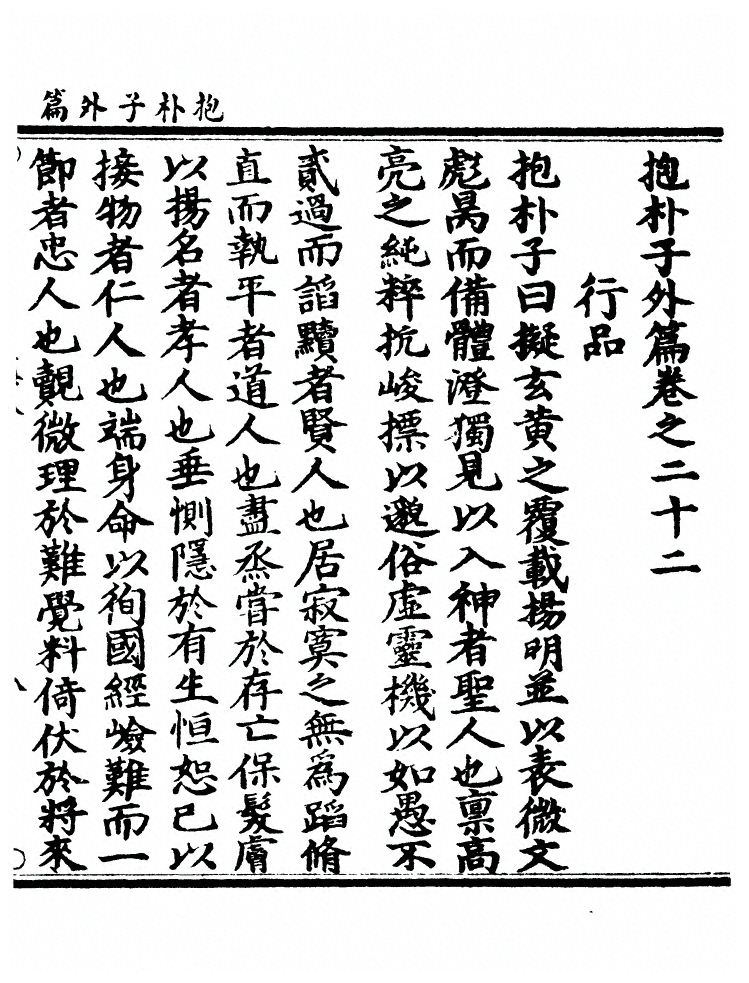 抱朴子外篇
抱朴子外篇卷之二十二
行品
抱朴子曰擬玄黄之覆載揚明並以表微文
彪昺而備體澄獨見以入神者聖人也禀高
亮之純粹抗峻摽以邈俗虛靈機以如愚不
貳過而謟黷者賢人也居寂寞之無爲蹈脩
直而執平者道人也盡烝嘗於存亡保髮膚
以揚名者孝人也垂惻隱於有生恒恕已以
接物者仁人也端身命以徇國經嶮難而一
節者忠人也覿微理於難覺料倚伏於將來